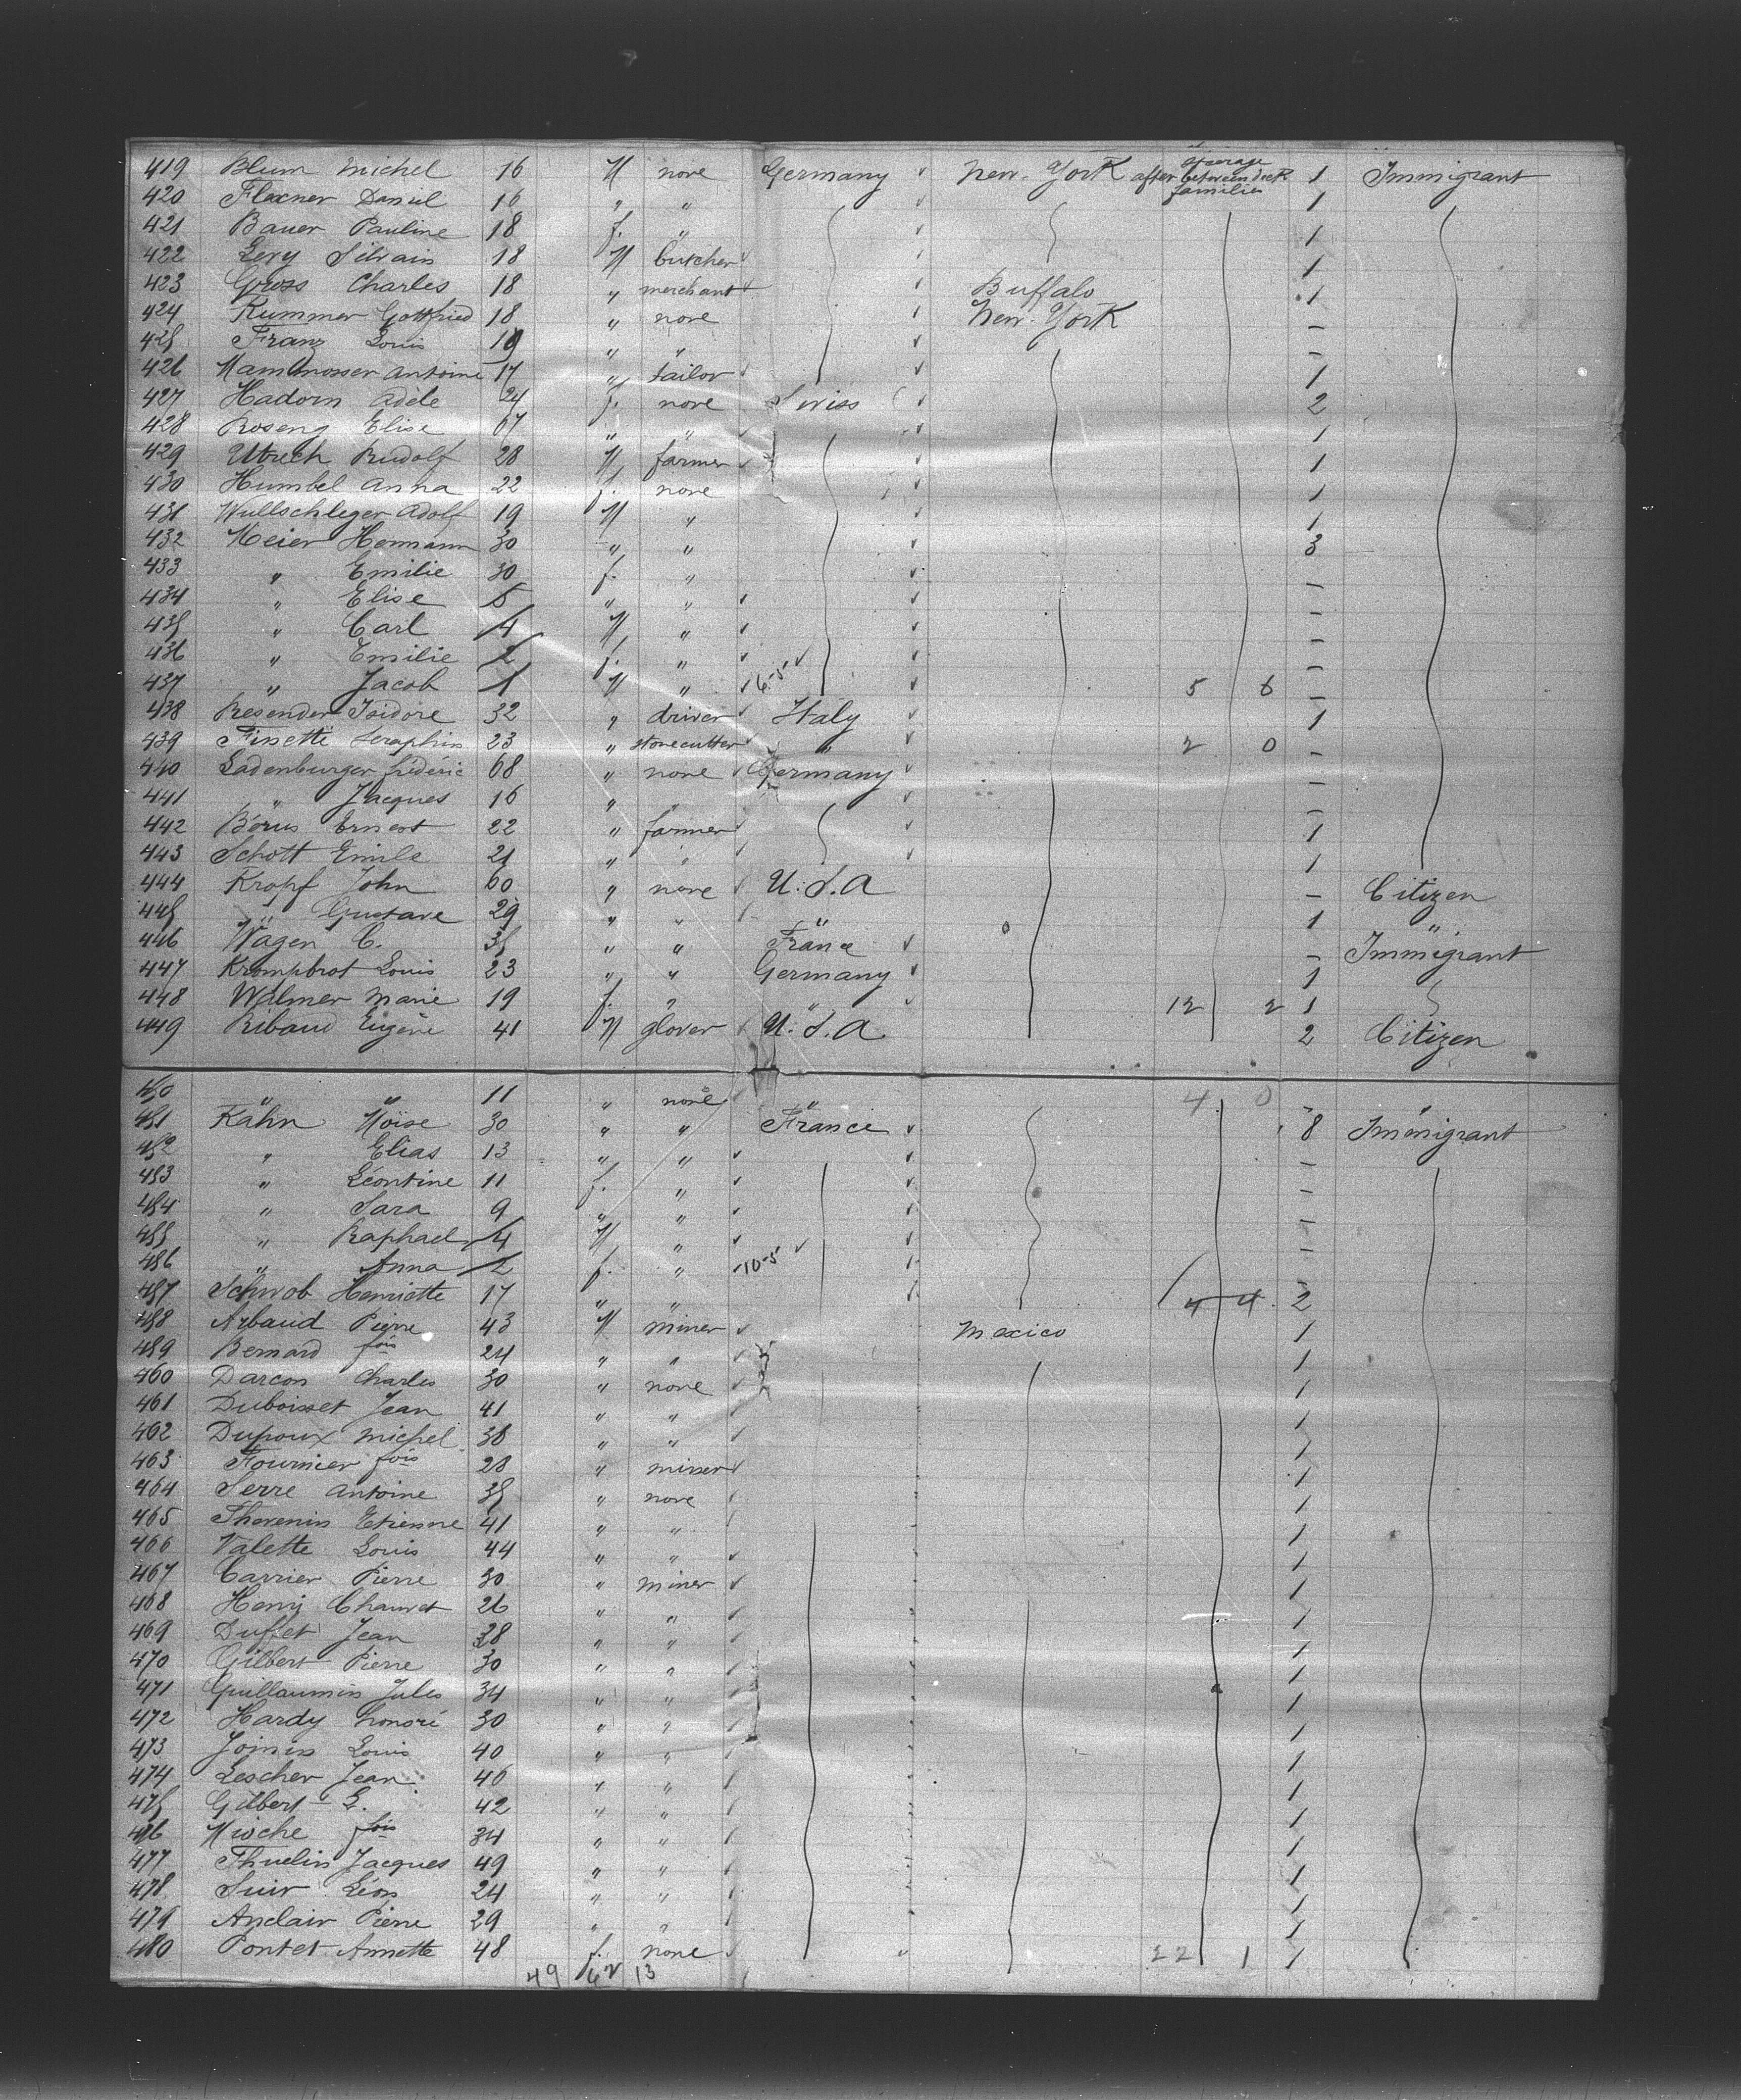 419 Blum Michel 16 M none Germany New-York steerage after between deck families 1 Immigrant
420 Flexner Daniel 16 " " 1
421 Bauer Pauline 18 f. " 1
422 Levy Silvain 18 M butcher 1
423 Gross Charles 18 " merchant Buffalo 1
424 Kummer Gottfried 18 " none New-York –
425 Franz Louis 19 " " –
426 Antoine 17 " tailor 1
427 Hadorn Adèle 24 f. none Swiss 2
428 Roseng Elise 67 " " 1
429 Rudolf 28 M farmer 1
430 Humbel Anna 22 f. none 1
431 Wullschleger Adolf 19 M " 1
432 Meier Hermann 30 " " 3
433 " Emilie 30 f. " –
434 " Elise 5 " " –
435 " Carl 4 M " –
436 " Emilie 2 f. " –
437 " Jacob 1 M " 6-5 5 6 –
438 Resender Isidore 32 " driver Italy 1
439 Finetti Seraphin 23 " stonecutter " 2 0 –
440 Ladenburger frédéric 68 " none Germany –
441 " Jacques 16 " " –
442 Börus Ernest 22 " farmer 1
443 Schott Emile 21 " " 1
444 Kropf John 60 " none U.S.A – Citizen
445 " Gustave 29 " " " 1 "
446 Wagen C. 35 " " France – Immigrant
447 Krompbrot Louis 23 " " Germany 1
448 Walmer Marie 19 f. " " 12 2 1
449 Ribaud Eugène 41 M glover U.S.A 2 Citizen
450 " " 11 " none " 4 0 – "
451 Kahn Moïse 30 " " France 8 Immigrant
452 " Elias 13 " " –
453 " Léontine 11 f. " –
454 " Sara 9 " " –
455 " Raphael 4 M " –
456 " Anna 2 f. " 10-5 –
457 Schwob Henriette 17 " " 4 4 2
458 Arbaud Pierre 43 M miner Mexico 1
459 Bernard fois 24 " " 1
460 Darcon Charles 30 " none 1
461 Duboisset Jean 41 " " 1
462 Dupoux Michel 38 " " 1
463 Fournier fois 28 " miner 1
464 Serre Antoine 35 " none 1
465 Thevenin Etienne 41 " " 1
466 Valette Louis 44 " " 1
467 Carrier Pierre 30 " miner 1
468 Henry Chauvet 26 " " 1
469 Duffet Jean 28 " " 1
470 Gilbert Pierre 30 " " 1
471 Guillaumin Jules 34 " " 1
472 Hardy honoré 30 " " 1
473 Joinin Louis 40 " " 1
474 Lescher Jean 46 " " 1
475 Gilbert E. 42 " " 1
476 Mioche fois 34 " " 1
477 Thuelin Jacques 49 " " 1
478 Suir Léon 24 " " 1
479 Anclair Pierre 29 " " 1
480 Pontet Annette 48 f. none 22 1 1
49 62 13